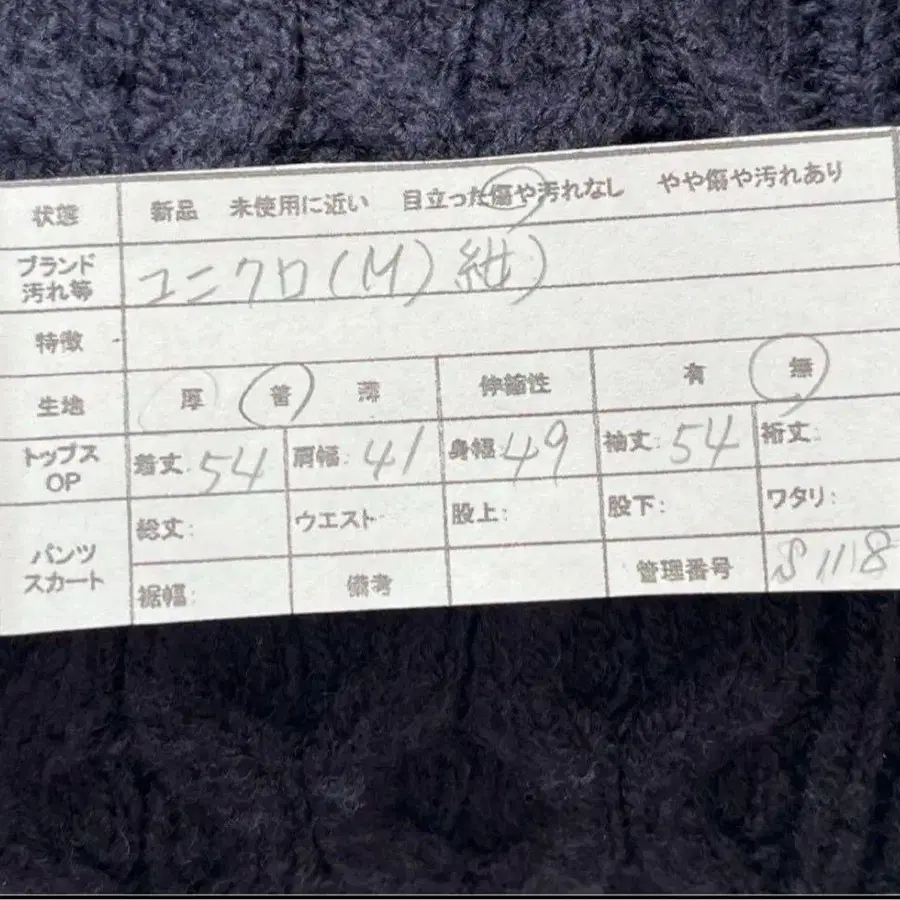 状態 新品 未使用に近い 目立った傷や汚れなし やや傷や汚れあり
ブランド
汚れ等 ユニクロ(M)紺)
特徴
生地 厚 普 薄 伸縮性 有 無
トップス
OP 着丈:54 肩幅:41 身幅:49 袖丈:54 裄丈:
総丈: ウエスト 股上: 股下: ワタリ:
パンツ
スカート 裾幅: 備考 管理番号 S1118